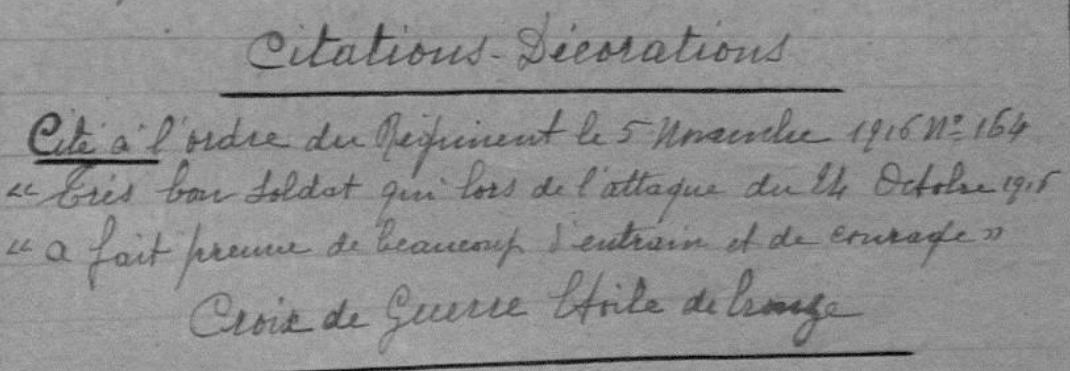 Citations-Décorations
Cité à l'ordre du Régiment le 5 Novembre 1916 N° 164
" très bon soldat qui lors de l'attaque du 24 Octobre 1916
" a fait preuve de beaucoup d'entrain et de courage "
Croix de Guerre Etoile de bronze